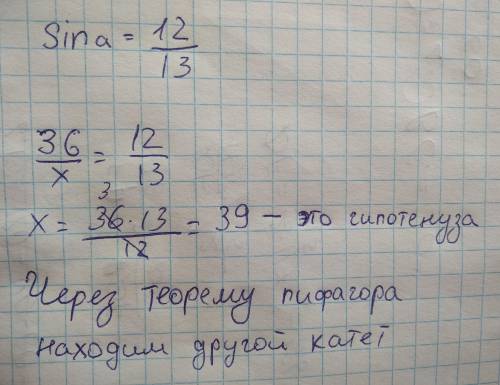 Sin a = 12/13
36/x = 12/13
x = 36·13/12 = 39 – это гипотенуза
3
Через теорему пифагора
находим другой катет